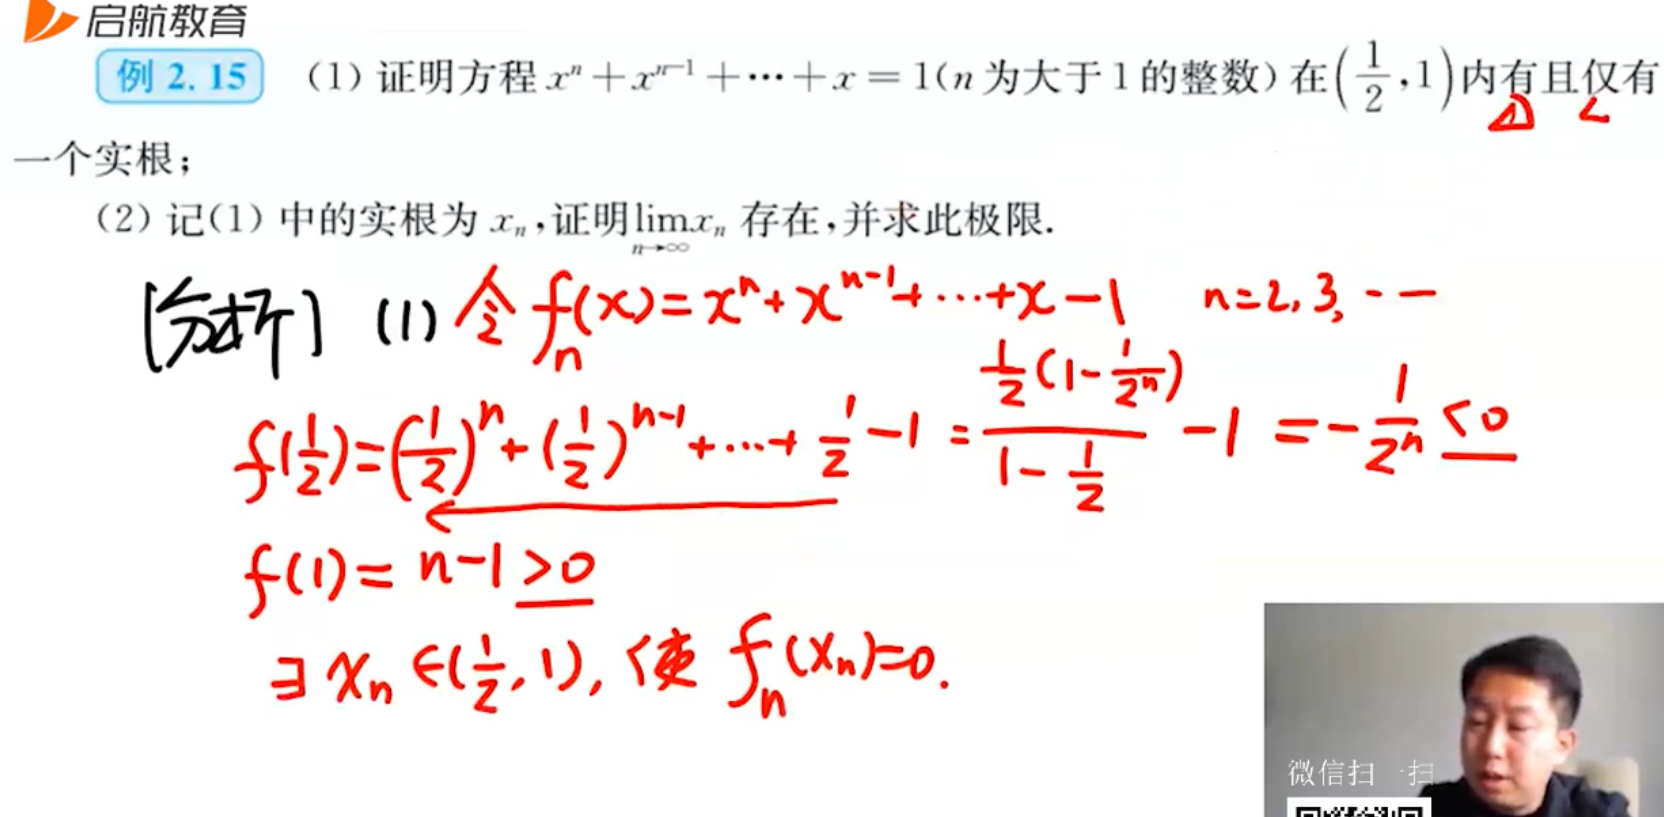 启航教育
例 2.15 (1) 证明方程 xⁿ + xⁿ⁻¹ + ⋯ + x = 1(n 为大于 1 的整数) 在(1/2, 1)内有且仅有
一个实根;
(2) 记(1) 中的实根为 xₙ,证明 lim xₙ 存在,并求此极限.
n→∞
[分析] (1) 令 fₙ(x) = xⁿ + xⁿ⁻¹ + ⋯ + x − 1 n=2,3, - -
f(1/2) = (1/2)ⁿ + (1/2)ⁿ⁻¹ + ⋯ + 1/2 − 1 = (1/2(1 − 1/2ⁿ))/(1 − 1/2) − 1 = −1/2ⁿ <0
f(1) = n−1 >0
∃ xₙ ∈(1/2, 1), 使 fₙ(xₙ)=0.
微信扫一扫